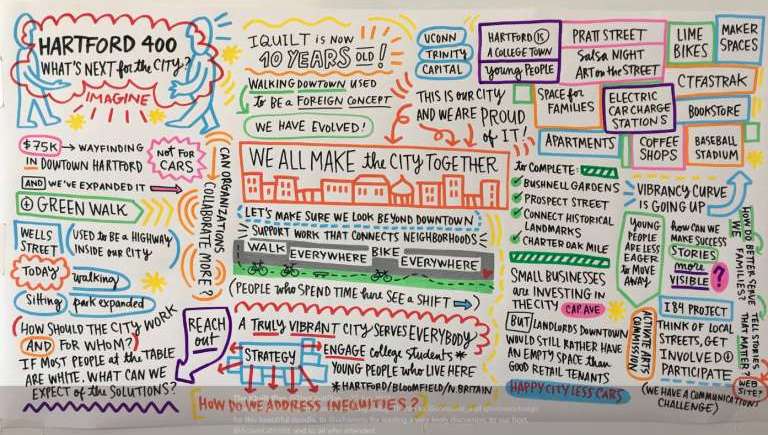 HARTFORD 400
WHAT'S NEXT for the CITY?
IMAGINE
$75K → WAYFINDING
IN DOWTOWN HARTFORD
NOT FOR
CARS
AND WE'VE EXPANDED IT
GREEN WALK
WELLS
STREET
USED to BE a HIGHWAY
INSIDE OUR CITY
TODAY
walking
Sitting
park expanded
HOW SHOULD the CITY WORK
AND FOR WHOM?
IF MOST PEOPLE at the TABLE
ARE WHITE. WHAT CAN WE
EXPECT of the SOLUTIONS?
REACH
OUT
CAN ORGANIZATIONS
COLLABORATE MORE?
IQUILT is NOW
10 YEARS OLD!
WALKING DOWTOWN USED
to BE a FOREIGN CONCEPT
WE HAVE EVOLVED!
WE ALL MAKE the CITY TOGETHER
LET'S MAKE SURE WE LOOK BEYOND DOWNTOWN
SUPPORT WORK THAT CONNECTS NEIGHBORHOODS
WALK EVERYWHERE BIKE EVERYWHERE
(PEOPLE who SPEND TIME here SEE a SHIFT
A TRULY VIBRANT CITY SERVES EVERYBODY
STRATEGY
ENGAGE College Students *
YOUNG PEOPLE who LIVE HERE
* HARTFORD/BLOOMFIELD/N.BRITAIN
HOW DO WE ADDRESS INEQUITIES?
UCONN
TRINITY
CAPITAL
THIS is OUR CITY
AND WE ARE PROUD
of IT!
HARTFORD IS
A COLLEGE TOWN
Young PEOPLE
PRATT STREET
Salsa NIGHT
ART on the STREET
LIME
BIKES
MAKER
SPACES
SPACE for
FAMILIES
ELECTRIC
CAR CHARGE
STATIONS
CTFASTRAK
BOOKSTORE
APARTMENTS
COFFEE
SHOPS
BASEBALL
STADIUM
to COMPLETE:
BUSHNELL GARDENS
PROSPECT STREET
CONNECT HISTORICAL
LANDMARKS
CHARTER OAK MILE
SMALL BUSINESSES
are INVESTING in
the CITY CAP AVE
BUT LANDLORDS DOWNTOWN
WOULD STILL RATHER HAVE
AN EMPTY SPACE than
GOOD RETAIL TENANTS
HAPPY CITY LESS CARS
VIBRANCY CURVE
is GOING UP
YOUNG
PEOPLE
ARE LESS
EAGER
to MOVE
AWAY
how CAN WE
MAKE SUCCESS
STORIES
more
VISIBLE ?
ACTIVATE ARTS
COMMISSION
I84 PROJECT
THINK OF LOCAL
STREETS, GET
INVOLVED
PARTICIPATE
(WE HAVE a COMMUNICATIONS
CHALLENGE)
HOW DO BETTER SERVE
WE FAMILIES?
TELL STORIES
THAT MATTER?
WEB
SITE?